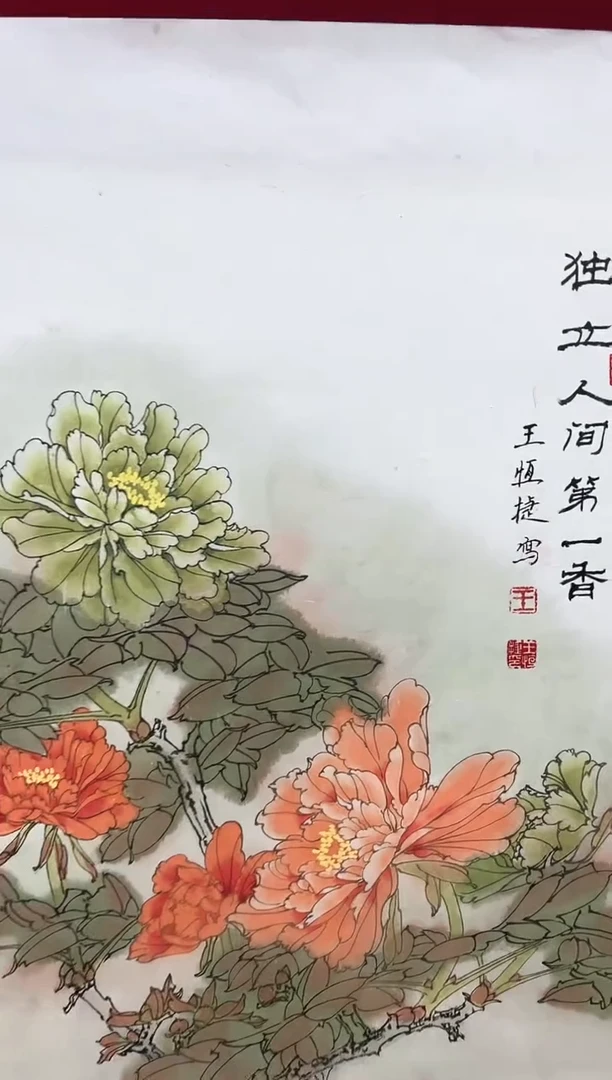 独立人间第一香
王恒捷写
王